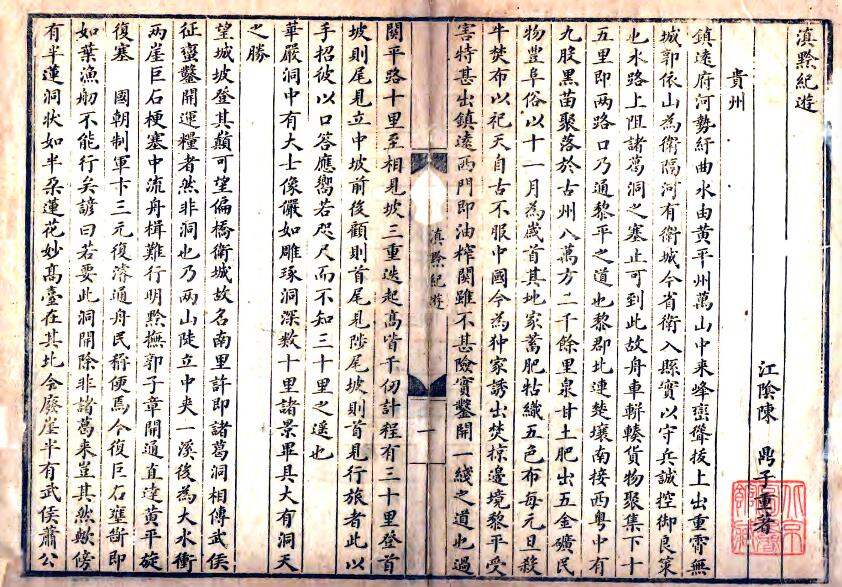 滇黔紀遊
江陰陳 鼎子重著
貴州
鎮遠府河勢紆曲水由黃平州萬山中来峰巒聳拔上出重霄無
城郭依山為衛隔河有衛城今省衛入縣實以守兵誠控御良策
也水路上阻諸葛洞之塞止可到此故舟車輧輳貨物聚集下十
五里即两路口乃通黎平之道也黎郡北連楚壤南接西粤中有
九股黑苗聚落於古州八萬方二千餘里泉甘土肥出五金礦民
物豐阜俗以十一月為歲首其地家蓄肥牯織五色布每元旦殺
牛焚布以祀天自古不服中國今為种家誘出焚掠邊境黎平受
害特甚出鎮遠西門即油榨関雖不甚險實鑿開一綫之道也過
滇黔紀遊
一
関平路十里至相見坡三重迭起高皆千仞計程有三十里登首
坡則尾見立中坡前後顧則首尾見陟尾坡則首見行旅者此以
手招彼以口答應嚮若咫尺而不知三十里之遥也
華嚴洞中有大士像儼如雕琢洞深数十里諸景畢具大有洞天
之勝
望城坡登其巔可望偏橋衛城故名南里許即諸葛洞相傳武侯
征蠻鑿開運糧者然非洞也乃两山陡立中夾一溪後為大水衝
两崖巨石梗塞中流舟楫難行明黔撫郭子章開通直達黃平旋
復塞 國朝制軍卞三元復濬通舟民稱便焉今復巨石壅斷即
如葉漁舠不能行矣諺曰若要此洞開除非諸葛来豈其然歟傍
有半蓮洞狀如半朶蓮花妙高臺在其北今廢崖半有武侯蕭公